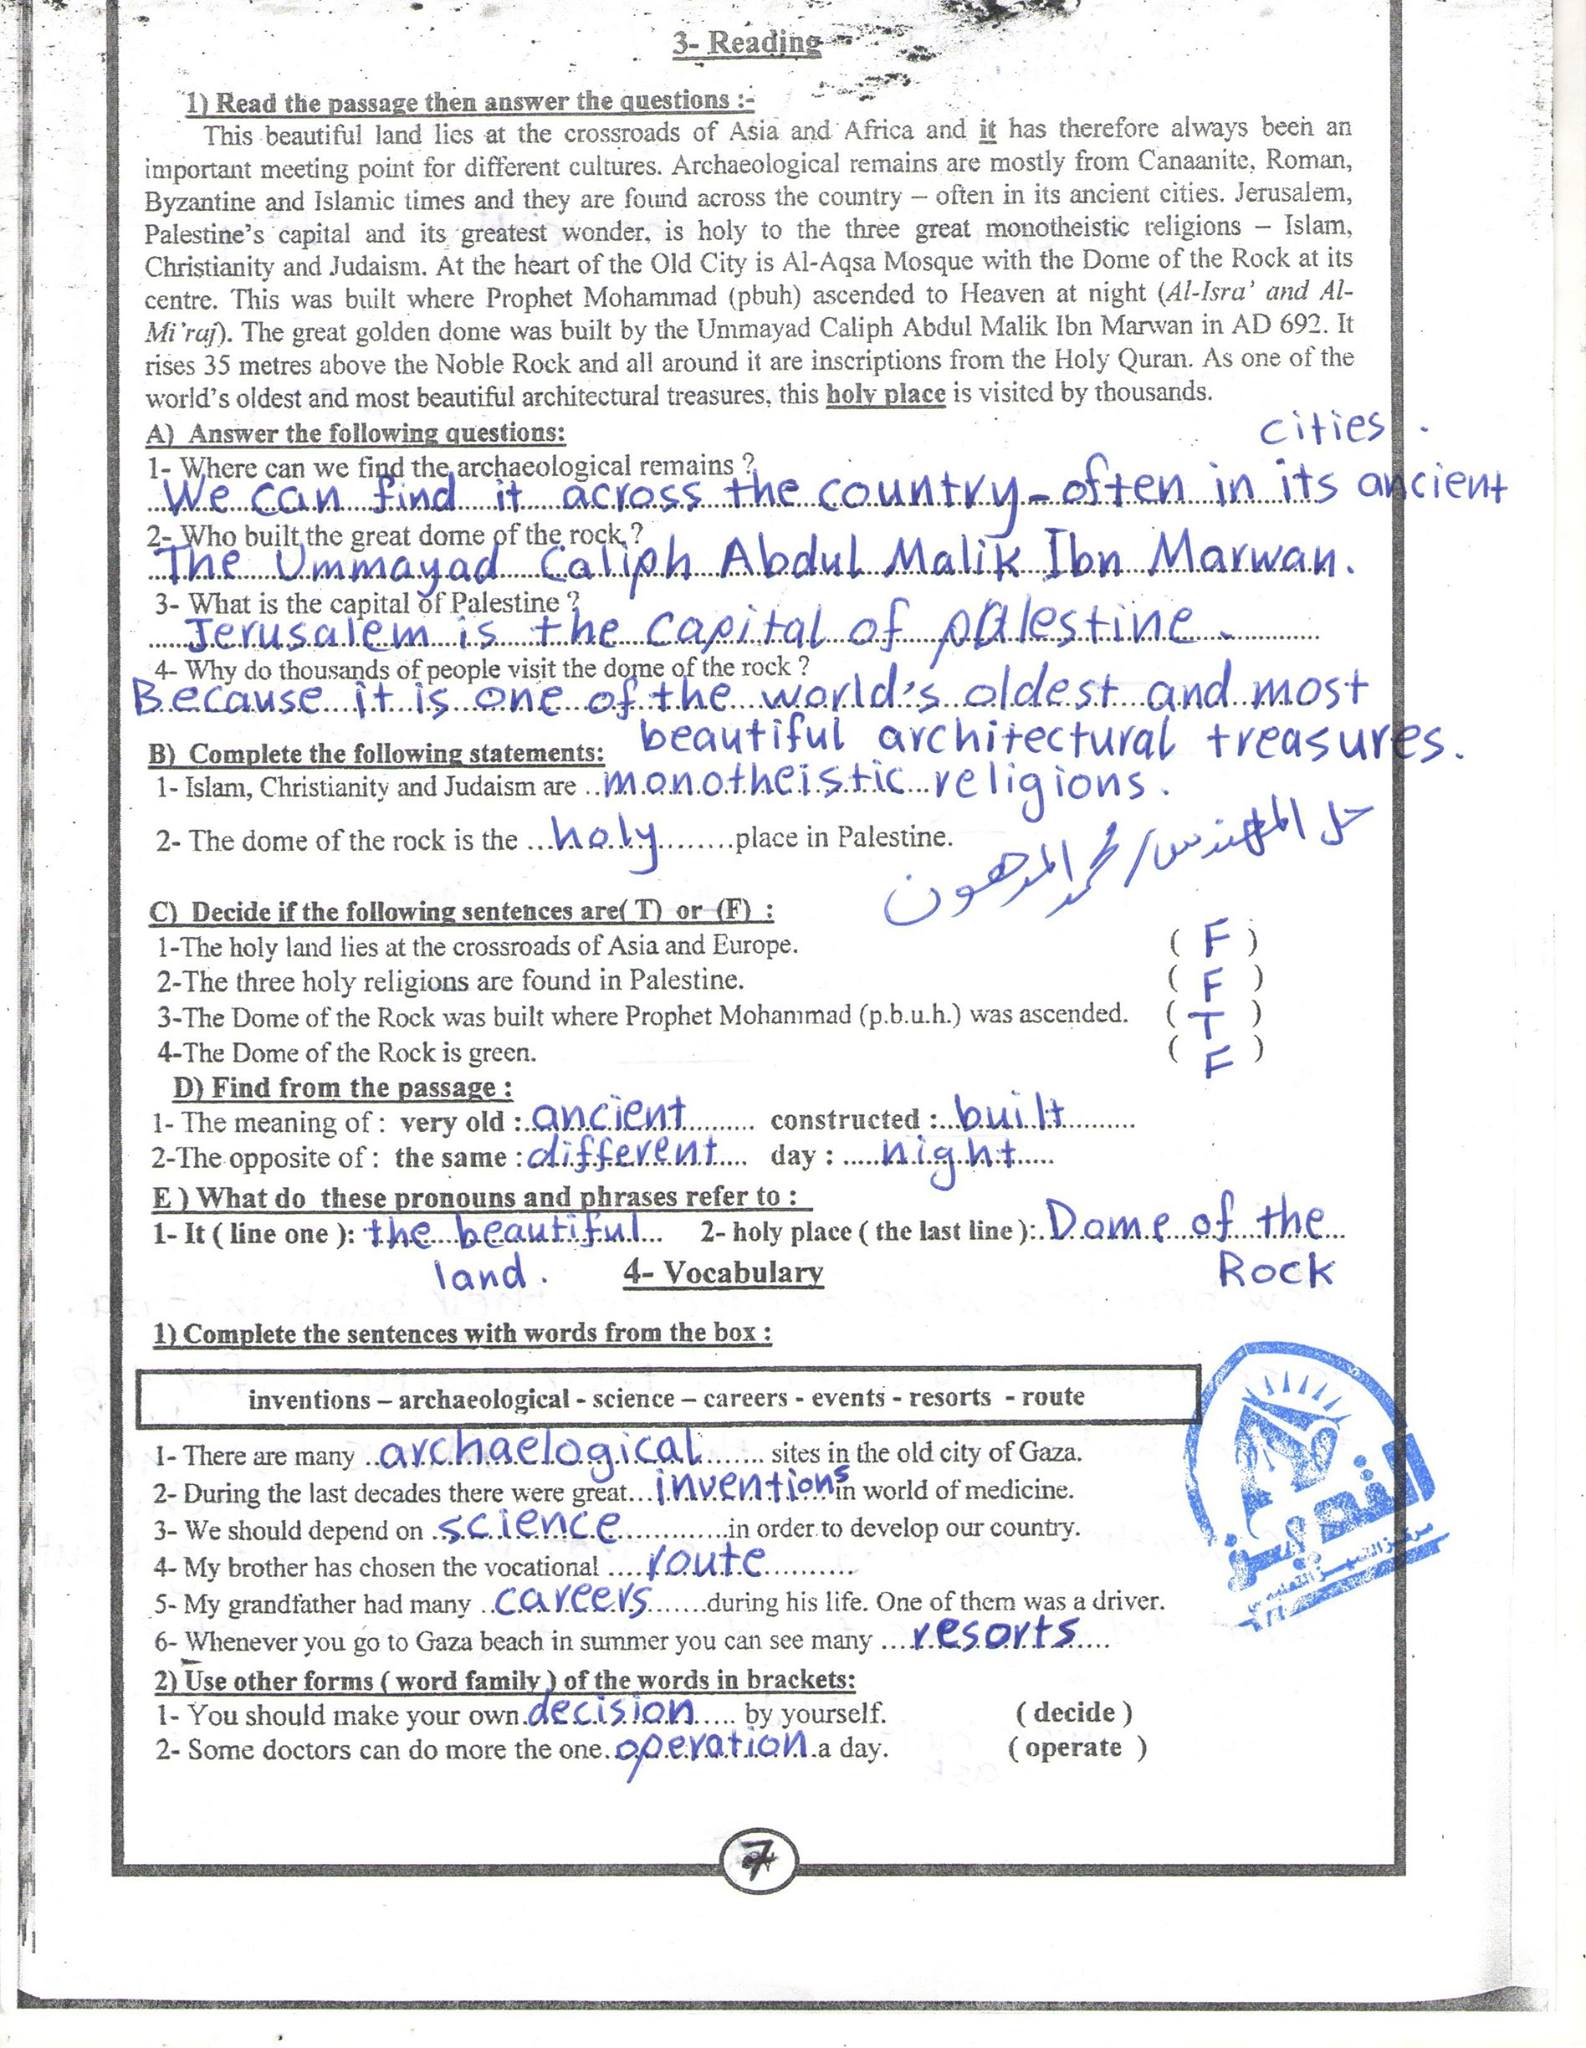 3- Reading
1) Read the passage then answer the questions :-
This beautiful land lies at the crossroads of Asia and Africa and it has therefore always been an
important meeting point for different cultures. Archaeological remains are mostly from Canaanite, Roman,
Byzantine and Islamic times and they are found across the country – often in its ancient cities. Jerusalem,
Palestine's capital and its greatest wonder, is holy to the three great monotheistic religions – Islam,
Christianity and Judaism. At the heart of the Old City is Al-Aqsa Mosque with the Dome of the Rock at its
centre. This was built where Prophet Mohammad (pbuh) ascended to Heaven at night (Al-Isra' and Al-
Mi'raj). The great golden dome was built by the Ummayad Caliph Abdul Malik Ibn Marwan in AD 692. It
rises 35 metres above the Noble Rock and all around it are inscriptions from the Holy Quran. As one of the
world's oldest and most beautiful architectural treasures, this holy place is visited by thousands.
A) Answer the following questions:
1- Where can we find the archaeological remains ?
We can find it across the country - often in its ancient
cities.
2- Who built the great dome of the rock ?
The Ummayad Caliph Abdul Malik Ibn Marwan.
3- What is the capital of Palestine ?
Jerusalem is the capital of palestine.
4- Why do thousands of people visit the dome of the rock ?
Because it is one of the world's oldest and most
beautiful architectural treasures.
B) Complete the following statements:
1- Islam, Christianity and Judaism are ..monotheistic religions.
2- The dome of the rock is the ...holy........place in Palestine.
حل المهندس/محمد المدهون
C) Decide if the following sentences are( T) or (F) :
1-The holy land lies at the crossroads of Asia and Europe. ( F )
2-The three holy religions are found in Palestine. ( F )
3-The Dome of the Rock was built where Prophet Mohammad (p.b.u.h.) was ascended. ( T )
4-The Dome of the Rock is green. ( F )
D) Find from the passage :
1- The meaning of : very old :.ancient......... constructed :..built..........
2-The opposite of : the same :different.... day : .....night.....
E ) What do these pronouns and phrases refer to :
1- It ( line one ): the beautiful... 2- holy place ( the last line ):.Dome of the
land. Rock
4- Vocabulary
1) Complete the sentences with words from the box :
inventions – archaeological - science – careers - events - resorts - route
1- There are many ..archaelogical....... sites in the old city of Gaza.
2- During the last decades there were great...inventions in world of medicine.
3- We should depend on .science............in order to develop our country.
4- My brother has chosen the vocational ....route...........
5- My grandfather had many ..careers.......during his life. One of them was a driver.
6- Whenever you go to Gaza beach in summer you can see many ....resorts....
2) Use other forms ( word family ) of the words in brackets:
1- You should make your own.decision..... by yourself. ( decide )
2- Some doctors can do more the one.operation.a day. ( operate )
7